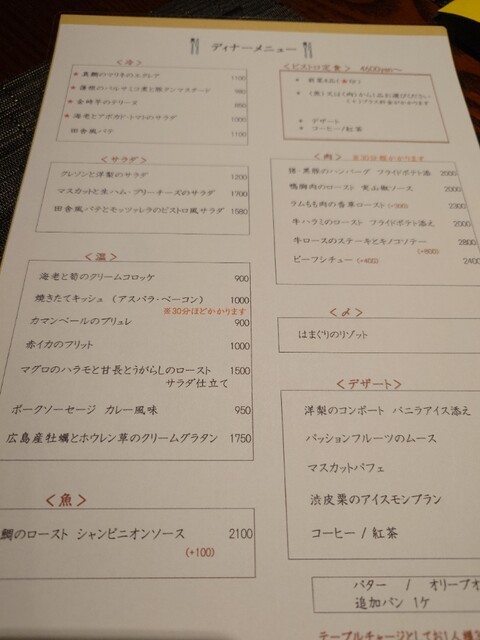 ディナーメニュー
<冷>
★ 真鯛のマリネのエクレア 1100
★ 蓮根のバルサミコ煮と豚タンマスタード 980
★ 金時芋のテリーヌ
★ 海老とアボカド・トマトのサラダ 1000
田舎風パテ 1100
<サラダ>
クレソンと洋梨のサラダ 1200
マスカットと生ハム・ブリーチーズのサラダ 1700
田舎風パテとモッツァレラのビストロ風サラダ 1580
<温>
海老と筍のクリームコロッケ 900
焼きたてキッシュ (アスパラ・ベーコン) 1000
※30分ほどかかります
カマンベールのブリュレ 900
赤イカのフリット 1000
マグロのハラモと甘長とうがらしのロースト 1500
サラダ仕立て
ポークソーセージ カレー風味 950
広島産牡蠣とホウレン草のクリームグラタン 1750
<魚>
鯛のロースト シャンピニオンソース 2100
(+100)
<ビストロ定食> 4600yen~
・ 前菜4品(★印)
・ (魚)又は(肉)から1品お選びください
・ デザート
・ コーヒー/紅茶
<肉> ※30分程かかります
猪・黒豚のハンバーグ フライドポテト添 2000
鴨胸肉のロースト 実山椒ソース 2000
ラムもも肉の香草ロースト (+300) 2300
牛ハラミのロースト フライドポテト添え 2000
牛ロースのステーキとキノコソテー 2800
(+800)
ビーフシチュー (+400) 2400
<〆>
はまぐりのリゾット
<デザート>
洋梨のコンポート バニラアイス添え
パッションフルーツのムース
マスカットパフェ
渋皮栗のアイスモンブラン
コーヒー / 紅茶
バター / オリーブオ
追加パン 1ケ
テーブルチャージとしてお1人様